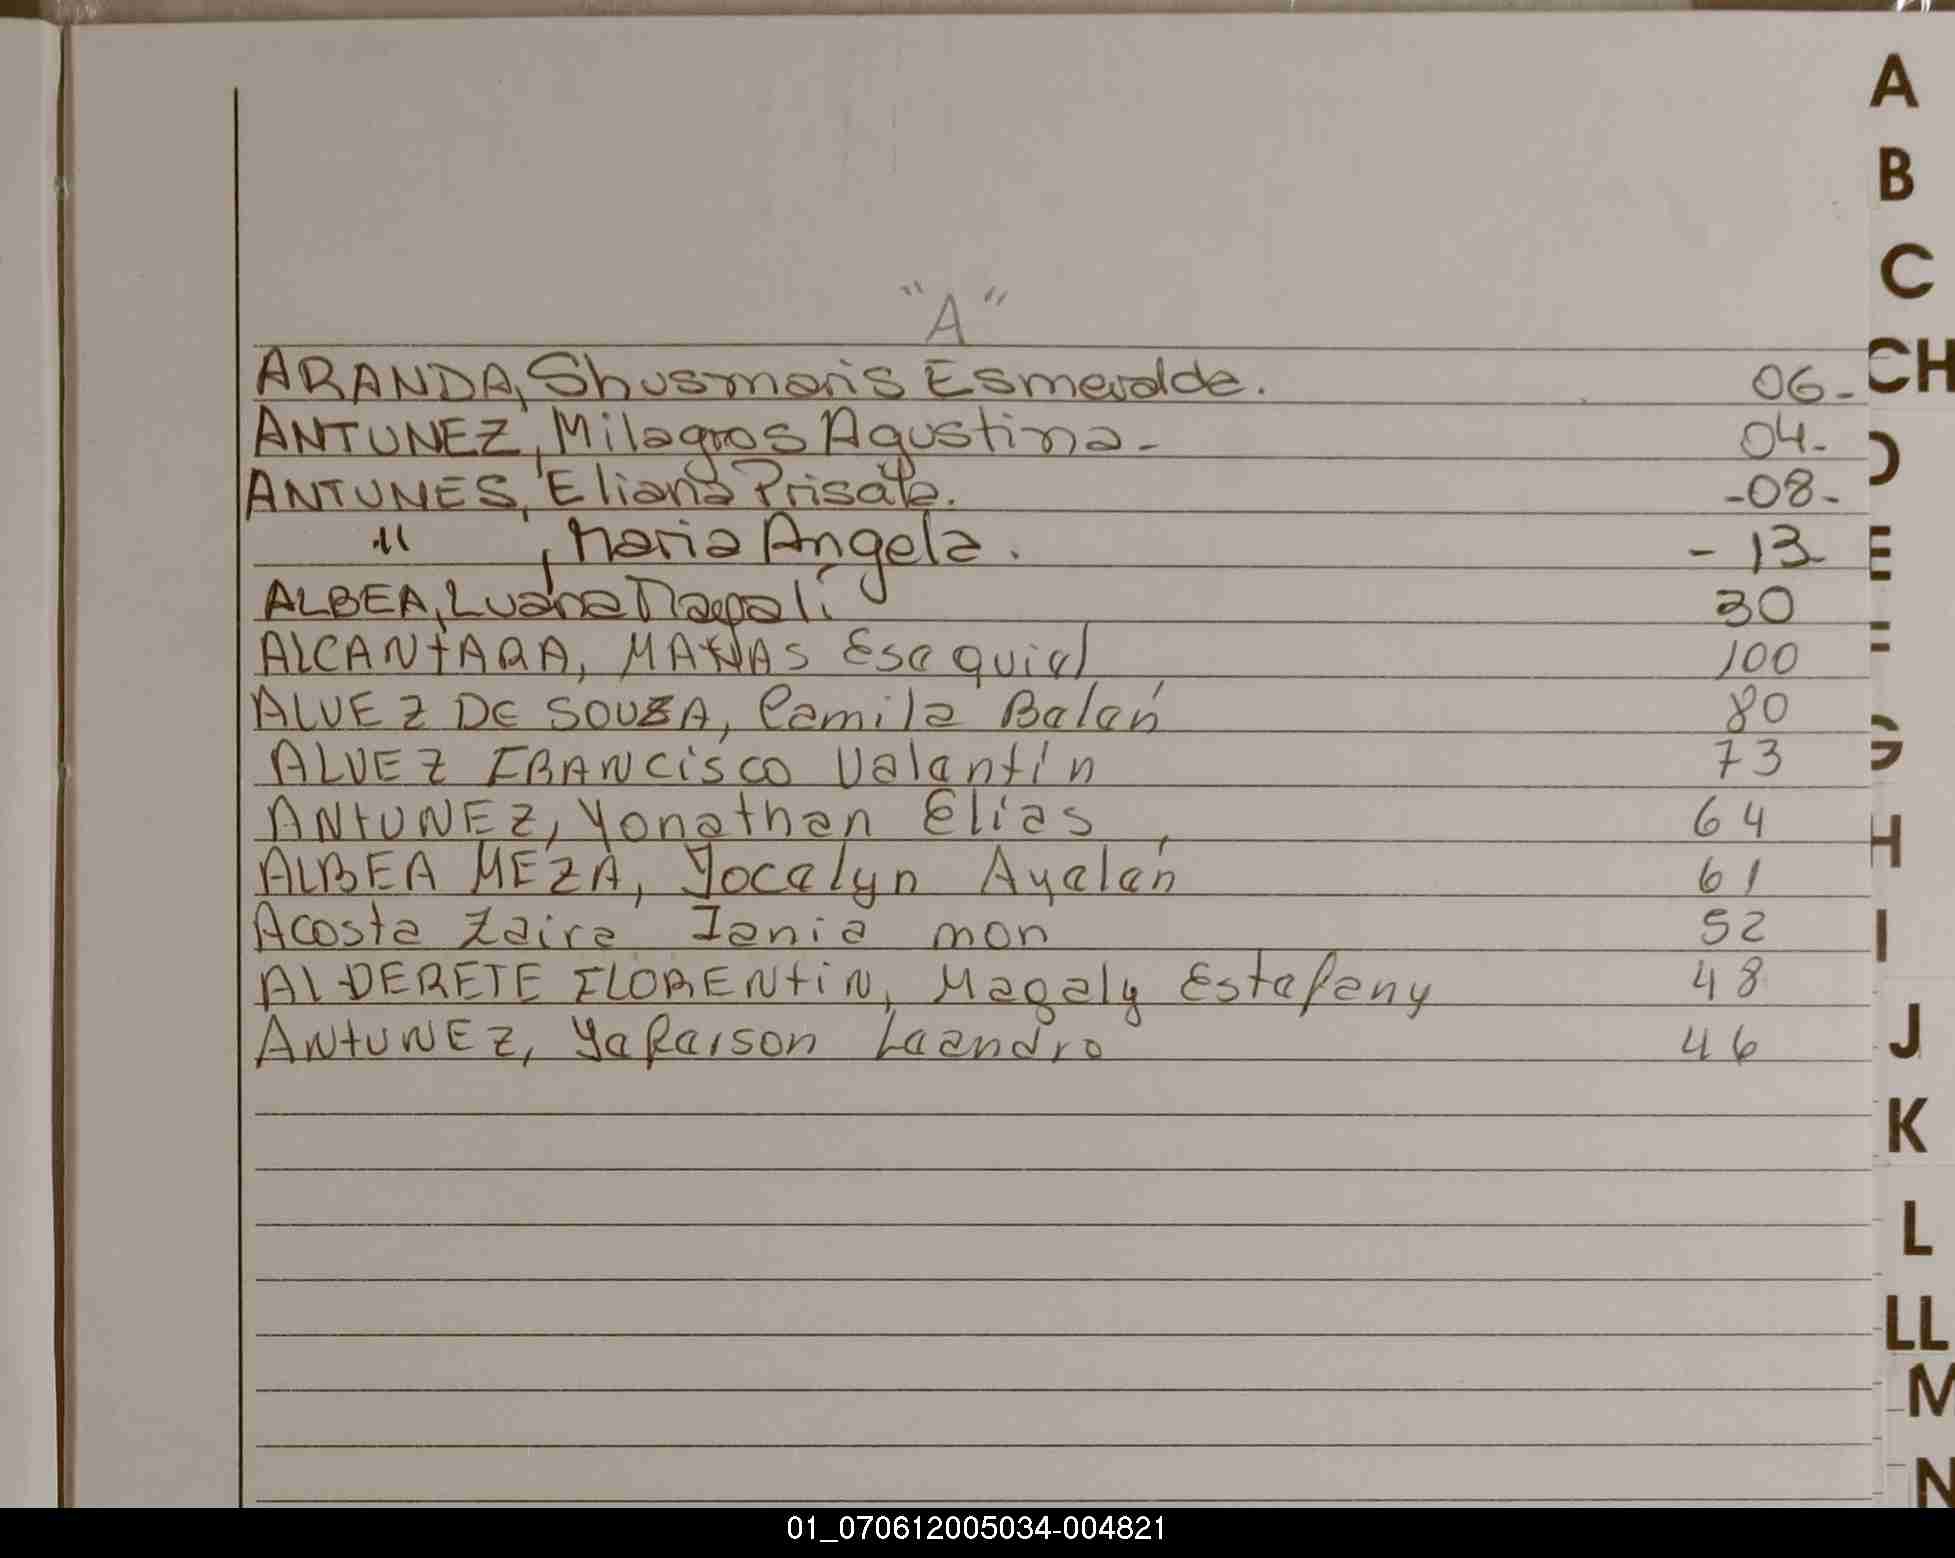 "A"
ARANDA, Shusmaris Esmeralda. 06-
ANTUNEZ, Milagros Agustina- 04-
ANTUNES, Eliana -08-
" , Maria Angela. - 13
ALBEA, Luana Magali 30
ALCANtARA, MAtIAS Esequiel 100
ALVEZ DE SOUZA, Camila Belén 80
ALVEZ FRANCisco Valentín 73
ANtUNEZ, Yonathan Elías 64
ALBEA MEZA, Yocelyn Ayelén 61
Acosta Zaira Tania mon 52
ALDERETE FLORENtiN, Magaly Estefany 48
ANtUNEZ, Yeferson Leandro 46
A
B
C
CH
D
E
F
G
H
I
J
K
L
LL
M
N
01_070612005034-004821